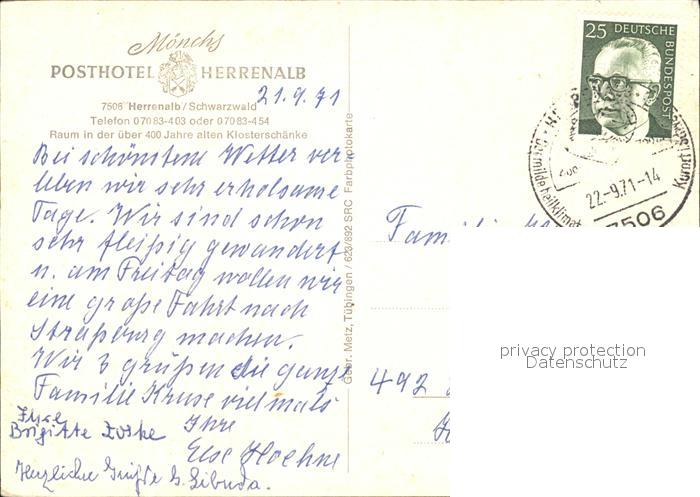 Mönchs
POSTHOTEL HERRENALB
7506 Herrenalb / Schwarzwald
Telefon 07083-403 oder 07083-454
Raum in der über 400 Jahre alten Klosterschänke
21.9.71
Bei schönstem Wetter ver-
leben wir sehr erholsame
Tage. Wir sind schon
sehr fleißig gewandert
u. am Freitag wollen wir
eine große Fahrt nach
Straßburg machen.
Wir 3 grüßen die ganze
Familie Kruse vielmals
Ihre
Brigitte
Ihre
Else Hoehne
Herzliche Grüße G. Libuda.
Gebr. Metz, Tübingen / 623/892 SRC Farbphotokarte
25 DEUTSCHE
BUNDESPOST
22.-9.71-14
7506
Familie
492
privacy protection
Datenschutz